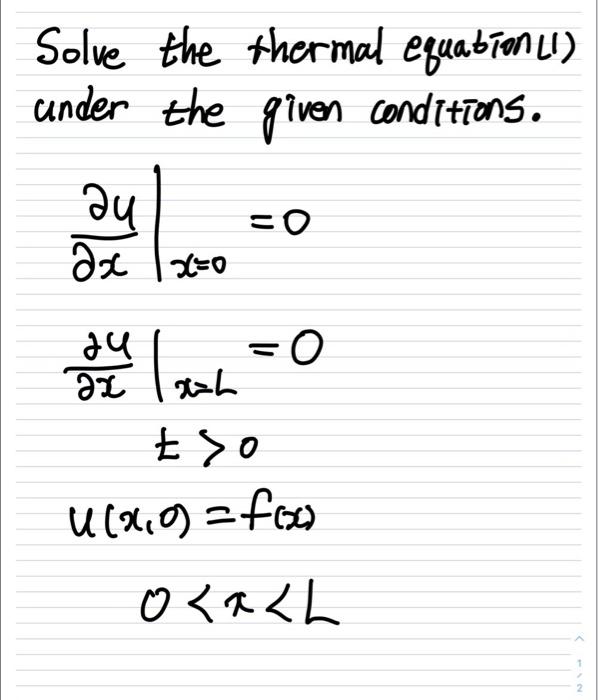 Solve the thermal equation (1)
under the given conditions.
∂u/∂x |x=0 = 0
∂u/∂x |x=L = 0
t > 0
u(x,0) = f(x)
0 < x < L
1
/
2